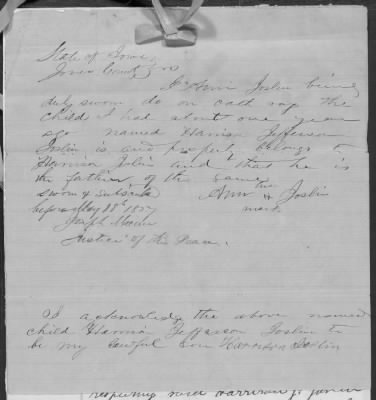 State of Iowa
Jones County } ss
I, Ann Joslin being
duly sworn do on oath say the
child I had about one year
ago named Harrison Jefferson
Joslin is and properly belongs to
Harrison Joslin and that he is
the father of the same
sworn & subscribed Ann her x Joslin
before May 28th 1857 mark
Joseph
Justice of the Peace.
I acknowledge the above named
child Harrison Jefferson Joslin to
be my lawful Son Harrison Joslin
said Harrison J. Joslin